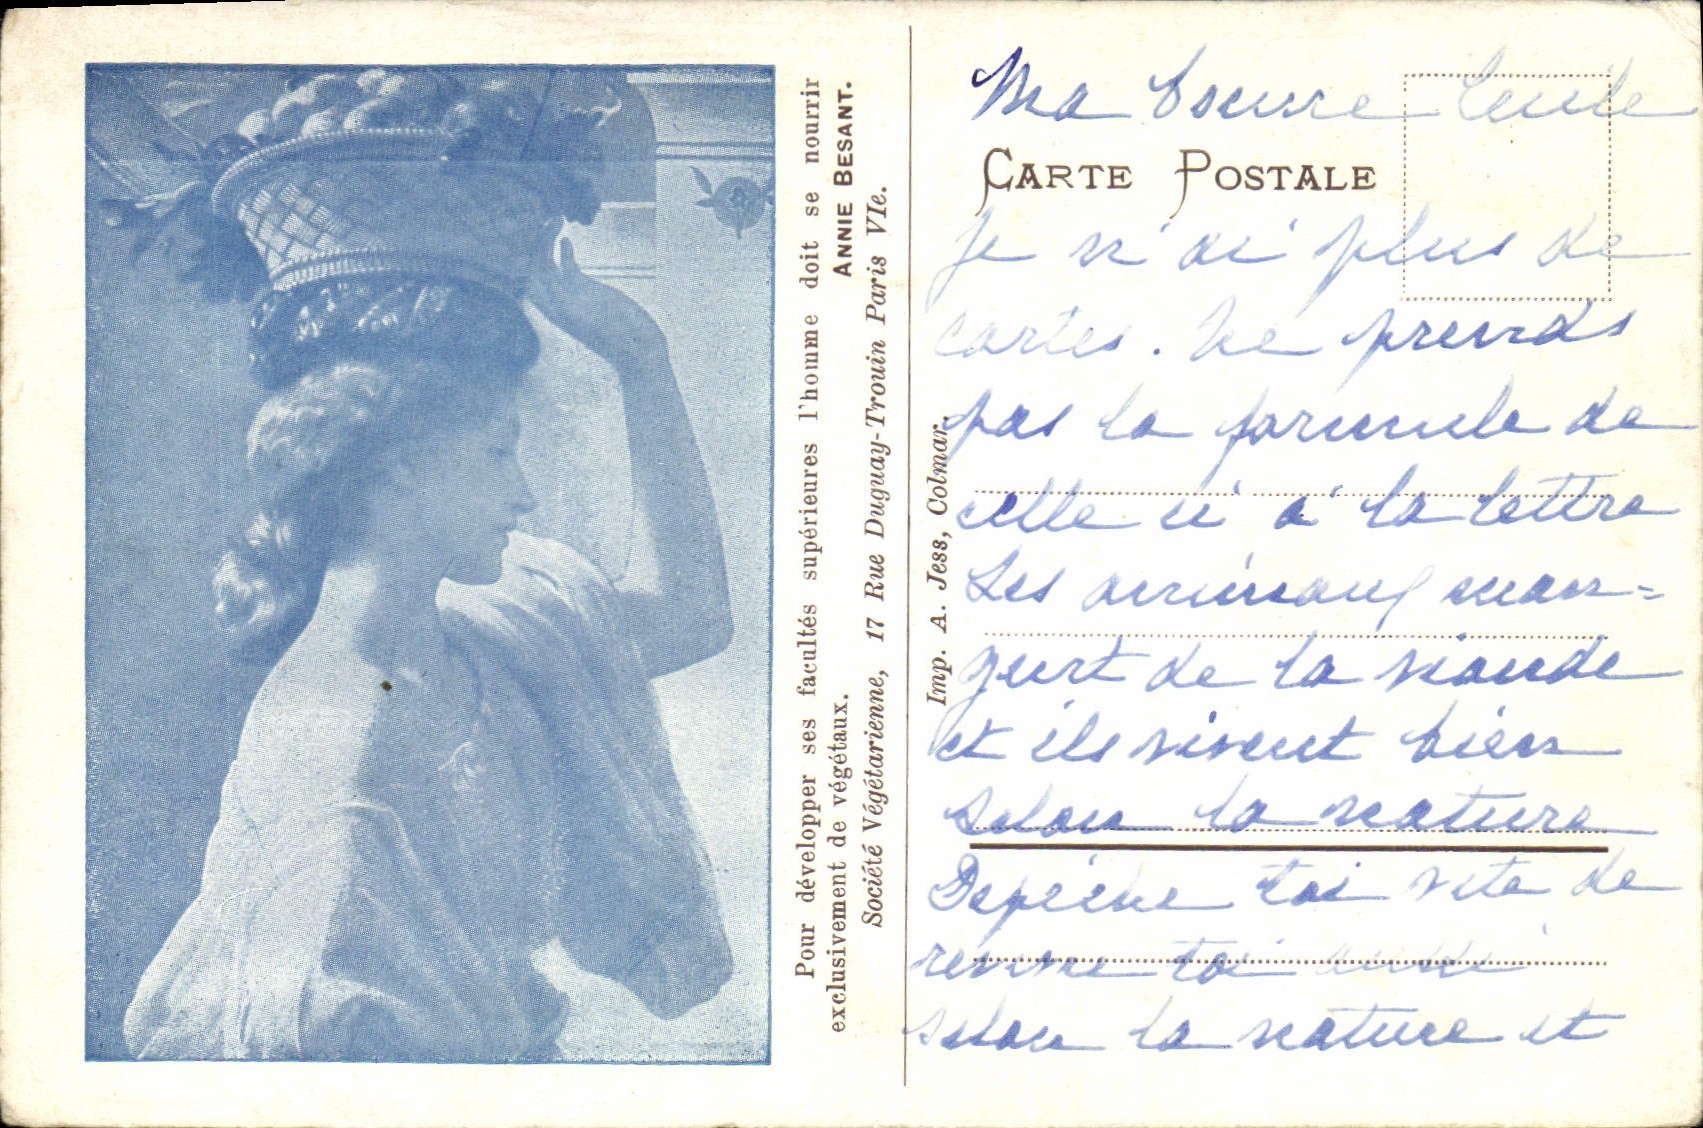 Pour développer ses facultés supérieures l'homme doit se nourrir
exclusivement de végétaux.
ANNIE BESANT.
Société Végétarienne, 17 Rue Duguay-Trouin Paris VIe.
Imp. A. Jess, Colmar.
CARTE POSTALE
Ma bonne
Je n'ai plus de
cartes. Ne prends
pas la formule de
celle ci à la lettre
Les animaux man=
gent de la viande
et ils vivent bien
selon la nature
Depêche toi vite de
toi aussi
selon la nature et